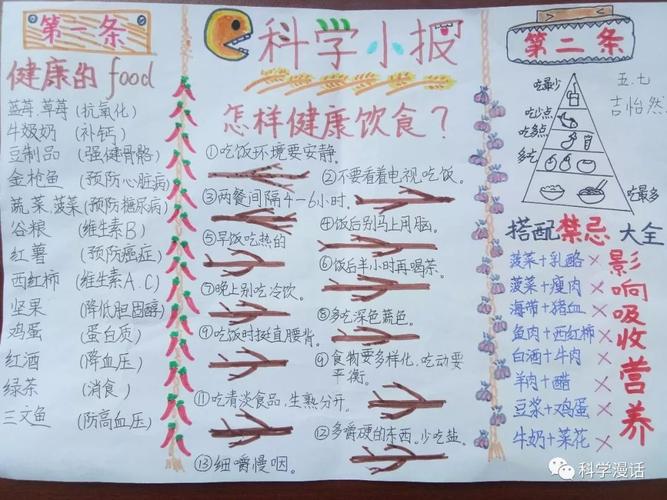 第一条
健康的food
蓝莓.草莓(抗氧化)
牛奶奶(补钙)
豆制品(强健骨骼)
金枪鱼(预防心脏病)
蔬菜.菠菜(预防糖尿病)
谷粮(维生素B)
红薯(预防癌症)
西红柿(维生素A.C)
坚果(降低胆固醇)
鸡蛋(蛋白质)
红酒(降血压)
绿茶(消食)
三文鱼(防高血压)
科学小报
怎样健康饮食?
①吃饭环境要安静。
②不要看着电视吃饭。
③两餐间隔4-6小时.
④饭后别马上用脑。
⑤早饭吃热的
⑥饭后半小时再喝茶。
⑦晚上别吃冷饮。
⑧多吃深色蔬色。
⑨吃饭时挺直腰背。
⑨食物要多样化,吃动要
平衡。
⑪吃清淡食品,生熟分开。
⑫多嚼硬的东西.少吃盐.
⑬细嚼慢咽。
第二条
五.七
吉怡然
吃最少
吃少点
吃多点
多吃
吃最多
搭配禁忌大全
菠菜+乳酪×
菠菜+瘦肉×
海带+猪血×
鱼肉+西红柿×
白酒+牛肉×
羊肉+醋×
豆浆+鸡蛋×
牛奶+菜花×
影响吸收营养
科学漫话